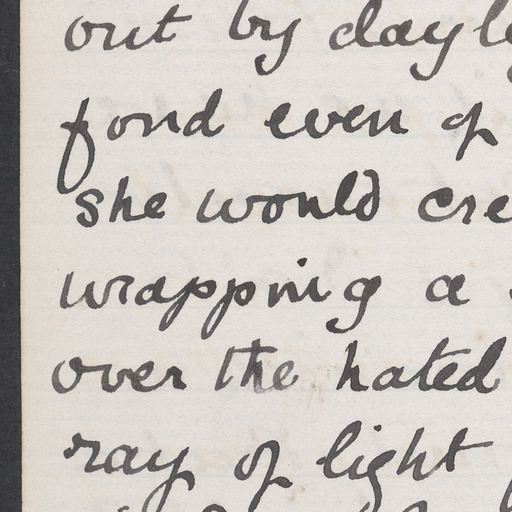 out by dayl
fond even of
she would cre
wrapping a
over the hated
ray of light